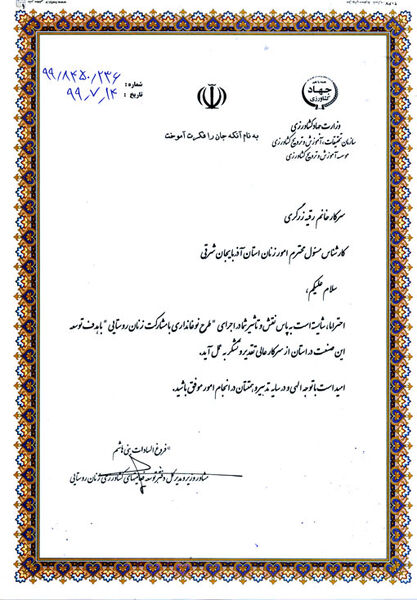 شماره: ۹۹/۸۴۵۰/۲۳۶
تاریخ: ۹۹.۷.۱۴
به نام آنکه جان را فکرت آموخت
جهاد
کشاورزی
وزارت جهاد کشاورزی
سازمان تحقیقات، آموزش و ترویج کشاورزی
موسسه آموزش و ترویج کشاورزی
سرکار خانم رقیه زرگری
کارشناس مسئول محترم امور زنان استان آذربایجان شرقی
سلام علیکم،
احتراما، شایسته است به پاس نقش و تاثیر شما در اجرای "طرح نوغانداری با مشارکت زنان روستایی" با هدف توسعه
این صنعت در استان از سرکار عالی تقدیر و تشکر به عمل آید.
امید است با توجه الهی و در سایه تدبیر و همتتان در انجام امور موفق باشید.
فروغ السادات بنی هاشم
مشاور وزیر و مدیر کل دفتر توسعه فعالیتهای کشاورزی زنان روستایی